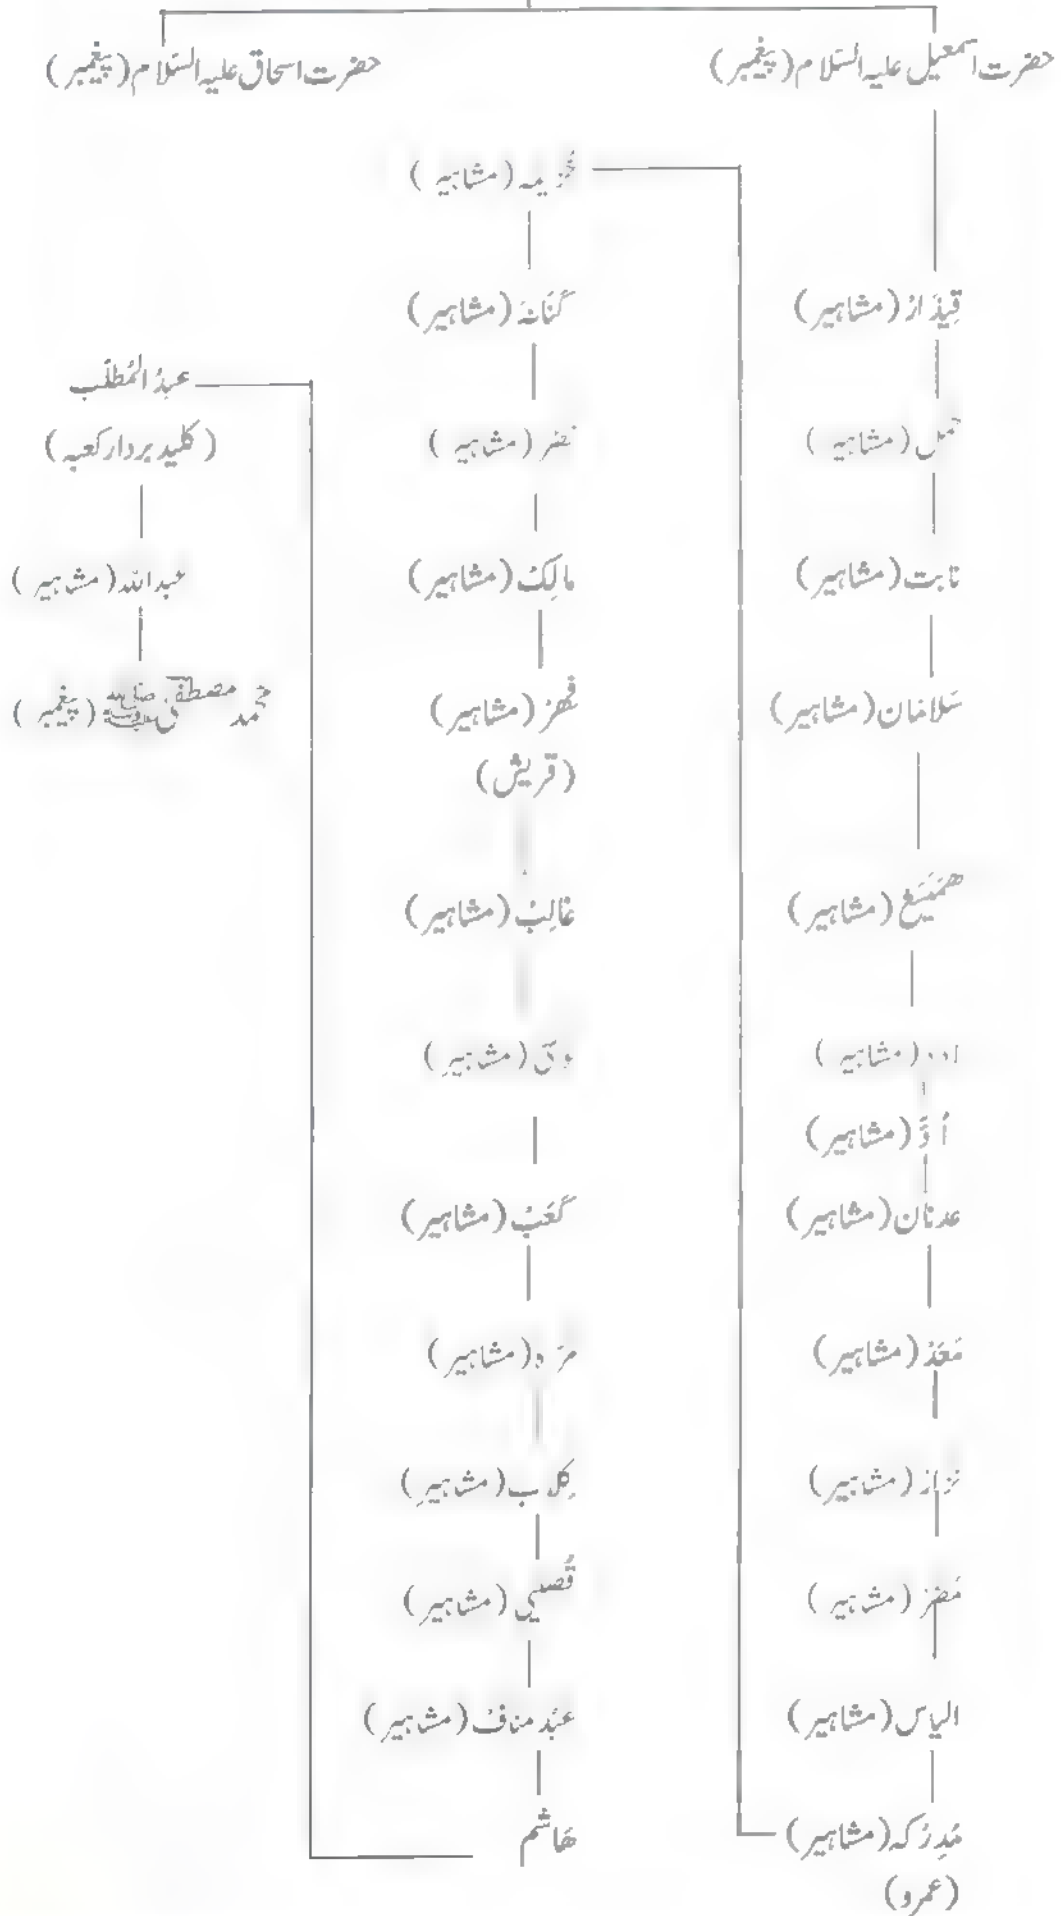 حضرت اسمعیل علیہ السّلام (پیغمبر)
حضرت اسحاق علیہ السّلام (پیغمبر)
قیذار (مشاہیر)
حمل (مشاہیر)
نابت (مشاہیر)
سَلامان (مشاہیر)
ھَمَیسَع (مشاہیر)
(مشاہیر)
اُدّ (مشاہیر)
عدنان (مشاہیر)
مَعَدْ (مشاہیر)
نزار (مشاہیر)
مُضَر (مشاہیر)
الیاس (مشاہیر)
مُدرکہ (مشاہیر)
(عمرو)
خُزیمہ (مشاہیر)
کَنَانَہ (مشاہیر)
نضر (مشاہیر)
مالِکْ (مشاہیر)
فھر (مشاہیر)
(قریش)
غالِبْ (مشاہیر)
(مشاہیر)
کَعَبْ (مشاہیر)
مرّہ (مشاہیر)
کِلاب (مشاہیر)
قُصیّی (مشاہیر)
عبْد منافْ (مشاہیر)
ھَاشم
عبدُ المُطلّب
(کلید بردار کعبہ)
عبد اللہ (مشاہیر)
محمد مصطفیٰ ﷺ (پیغمبر)